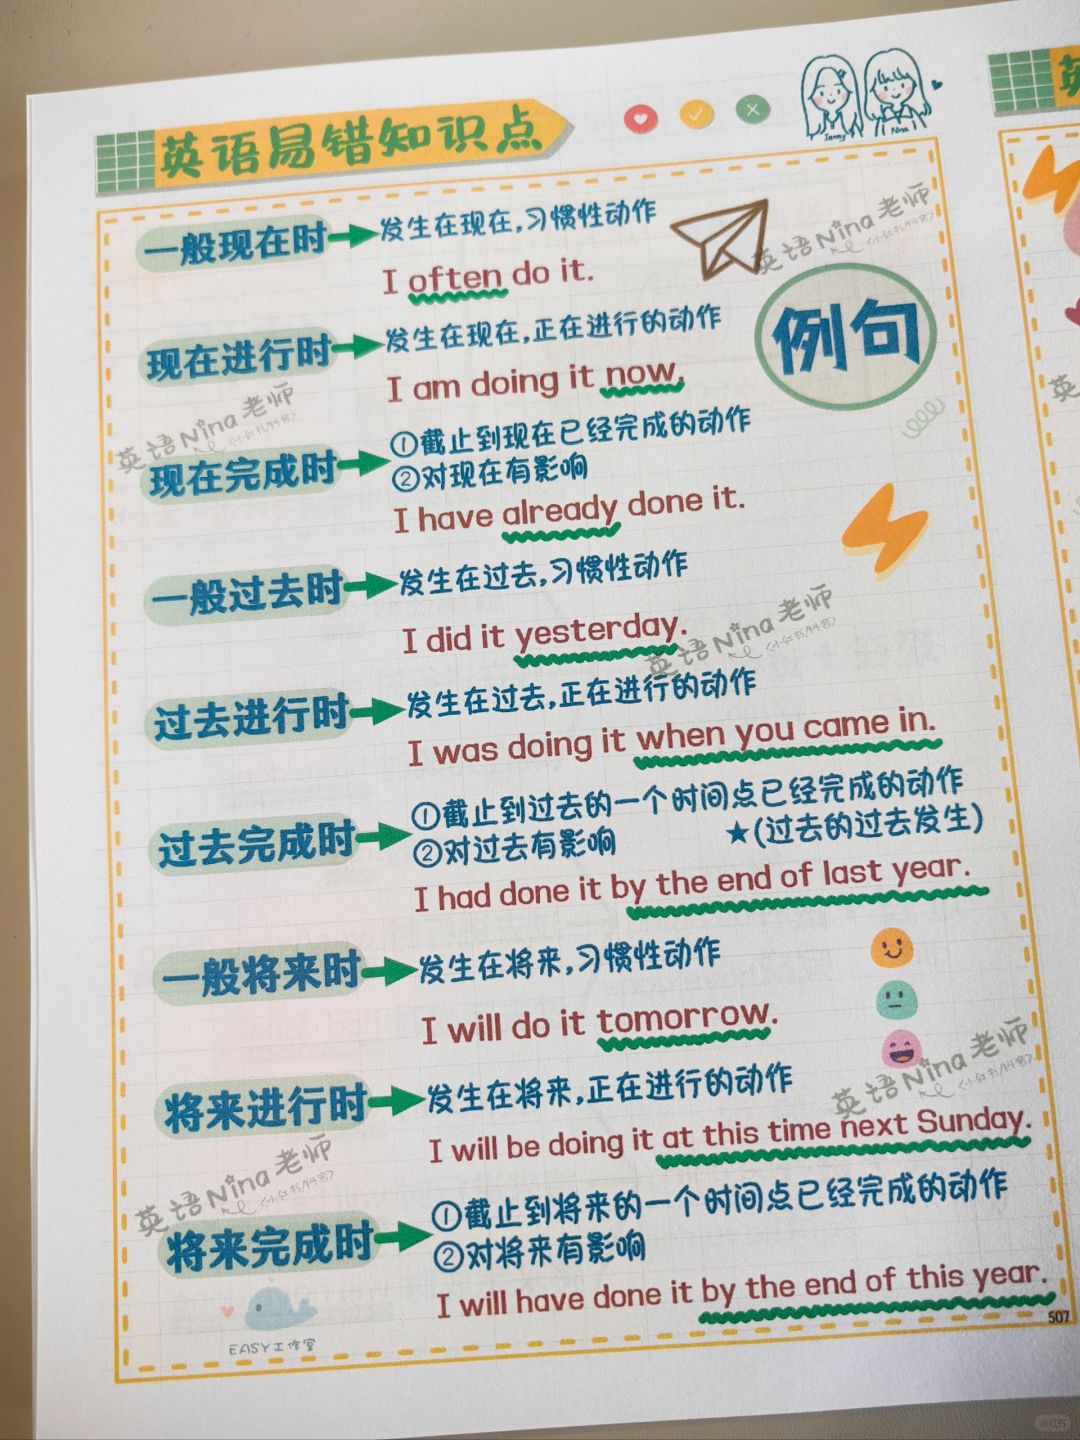 英语易错知识点
Jenny
Nina
一般现在时
发生在现在,习惯性动作
英语Nina老师
<小红书/抖音>
I often do it.
例句
现在进行时
发生在现在,正在进行的动作
I am doing it now.
英语Nina老师
<小红书/抖音>
现在完成时
①截止到现在已经完成的动作
②对现在有影响
I have already done it.
一般过去时
发生在过去,习惯性动作
I did it yesterday.
英语Nina老师
<小红书/抖音>
过去进行时
发生在过去,正在进行的动作
I was doing it when you came in.
过去完成时
①截止到过去的一个时间点已经完成的动作
②对过去有影响 ★(过去的过去发生)
I had done it by the end of last year.
一般将来时
发生在将来,习惯性动作
I will do it tomorrow.
英语Nina老师
<小红书/抖音>
将来进行时
发生在将来,正在进行的动作
I will be doing it at this time next Sunday.
英语Nina老师
<小红书/抖音>
将来完成时
①截止到将来的一个时间点已经完成的动作
②对将来有影响
I will have done it by the end of this year.
507
EASY工作室
英
英
小红书